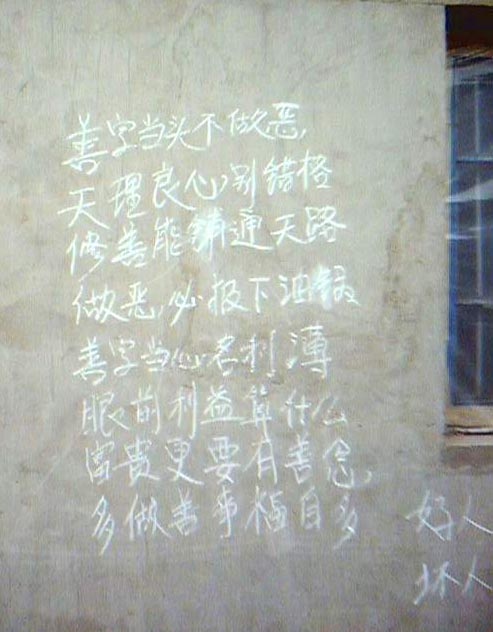 善字当头不做恶,
天理良心,别错格
修善能铺通天路
做恶,必报下油锅
善字当心名利薄
眼前利益算什么
富贵更要有善念,
多做善事福自多
好人
坏人